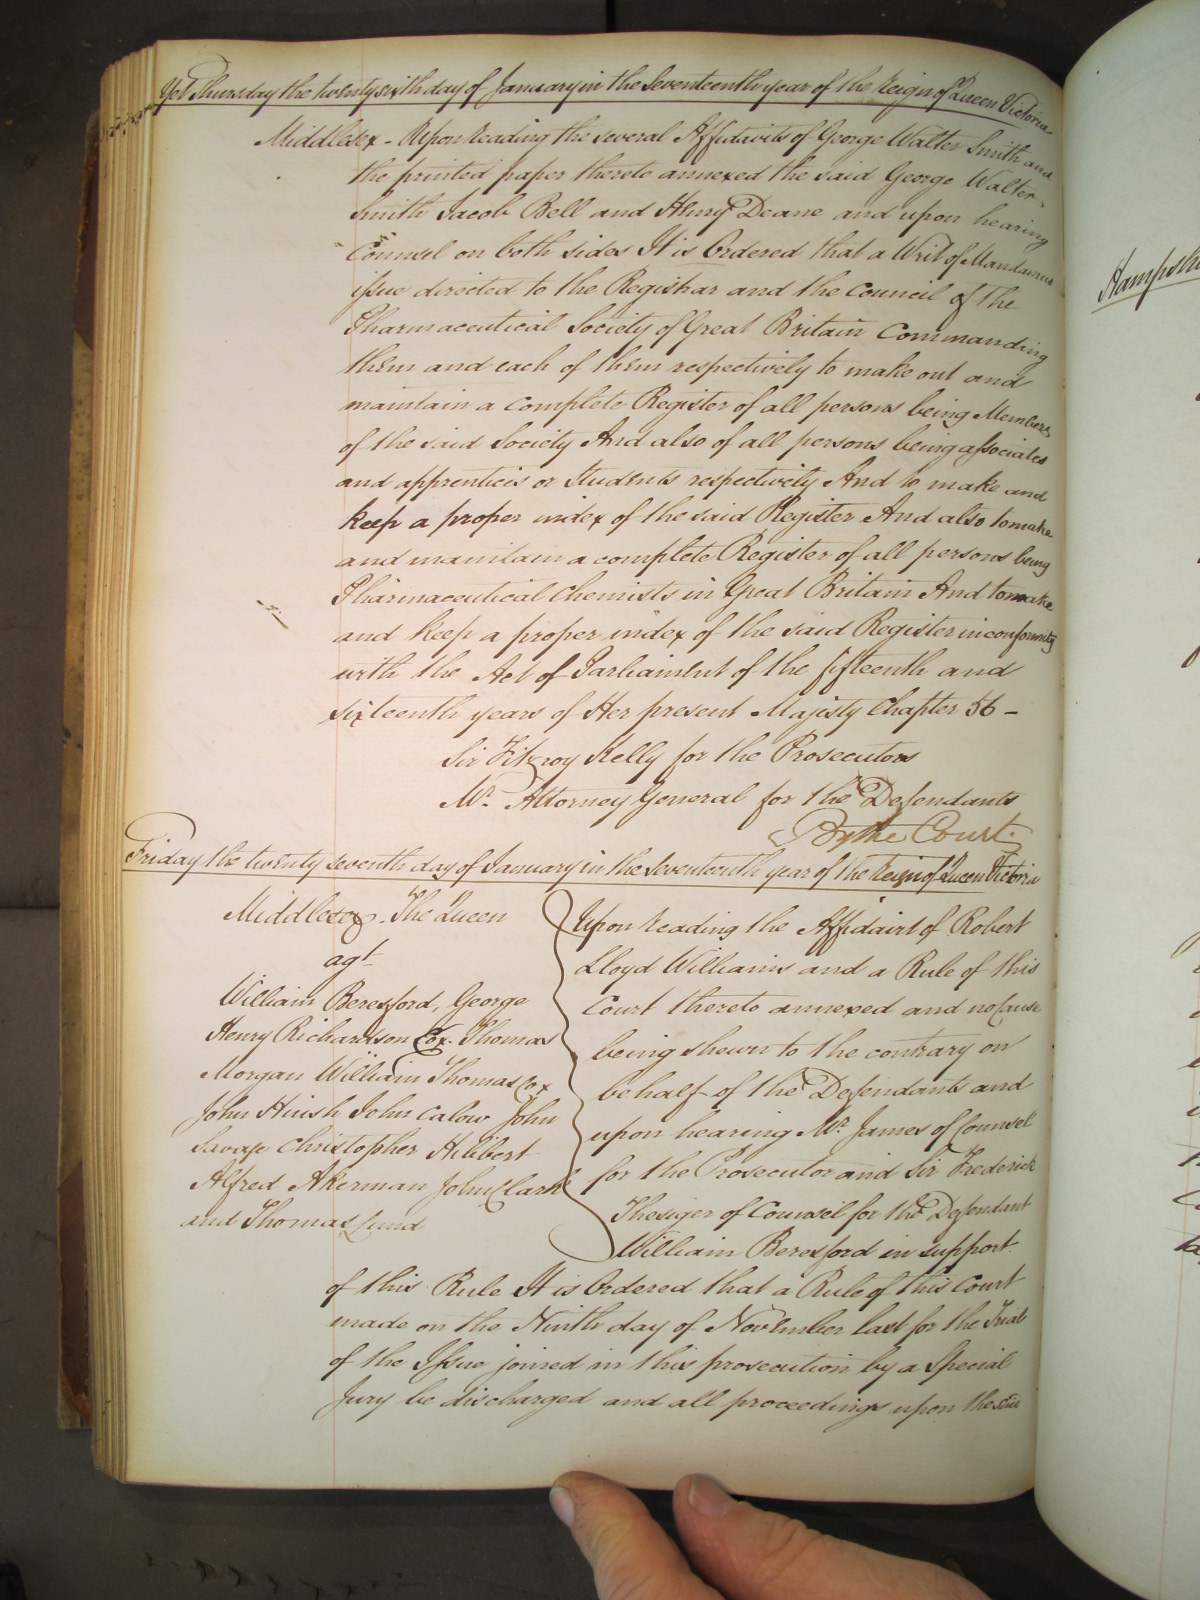 Yet Thursday the twenty sixth day of January in the Seventeenth year of the Reign of Queen Victoria
Middlesex - Upon reading the several Affidavits of George Walter Smith and
the printed paper thereto annexed the said George Walter
Smith Jacob Bell and Henry Deane and upon hearing
Counsel on both sides It is Ordered that a Writ of Mandamus
issue directed to the Registrar and the Council of the
Pharmaceutical Society of Great Britain Commanding
them and each of them respectively to make out and
maintain a complete Register of all persons being Members
of the said Society And also of all persons being associates
and apprentices or Students respectively And to make and
keep a proper index of the said Register And also to make
and maintain a complete Register of all persons being
Pharmaceutical Chemists in Great Britain And to make
and keep a proper index of the said Register in conformity
with the Act of Parliament of the fifteenth and
sixteenth years of Her present Majesty Chapter 56 -
Sir Fitzroy Kelly for the Prosecutors
Mr. Attorney General for the Defendants
By the Court.
Friday the twenty seventh day of January in the Seventeenth year of the Reign of Queen Victoria
Middlesex - The Queen
agt
William Beresford, George
Henry Richardson Cox Thomas
Morgan William Thomas Cox
John Hirish John Calow John
Savage Christopher Hilibert
Alfred Akerman John Clark
and Thomas Lund
Upon reading the Affidavit of Robert
Lloyd Williams and a Rule of this
Court thereto annexed and no Cause
being shewn to the contrary on
behalf of the Defendants and
upon hearing Mr. James of Counsel
for the Prosecutor and Sir Frederick
Thesiger of Counsel for the Defendant
William Beresford in support
of this Rule It is Ordered that a Rule of this Court
made on the Ninth day of November last for the Trial
of the Issue joined in this prosecution by a Special
Jury be discharged and all proceedings upon the
Hampshire